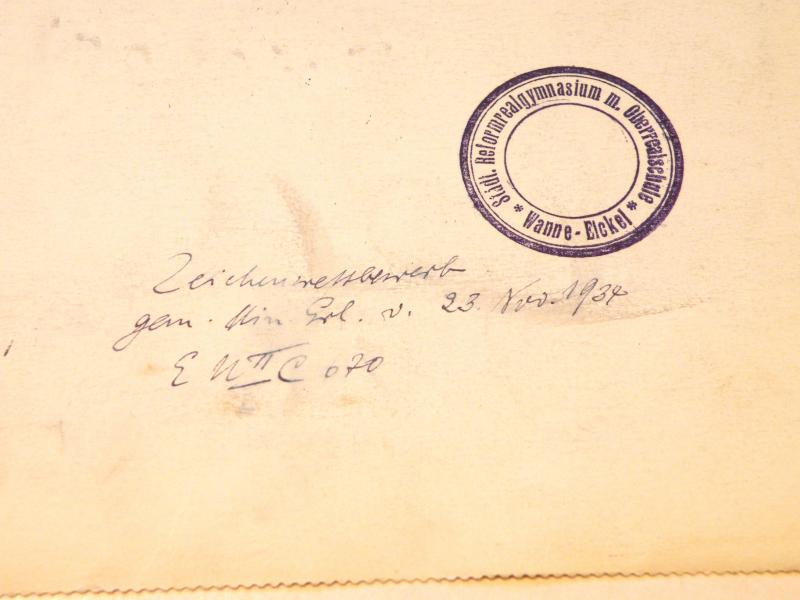 Städt. Reformrealgymnasium m. Oberrealschule
* Wanne-Eickel *
Zeichenwettbewerb
gem. Min. Erl. v. 23. Nov. 1934
E U II C 670